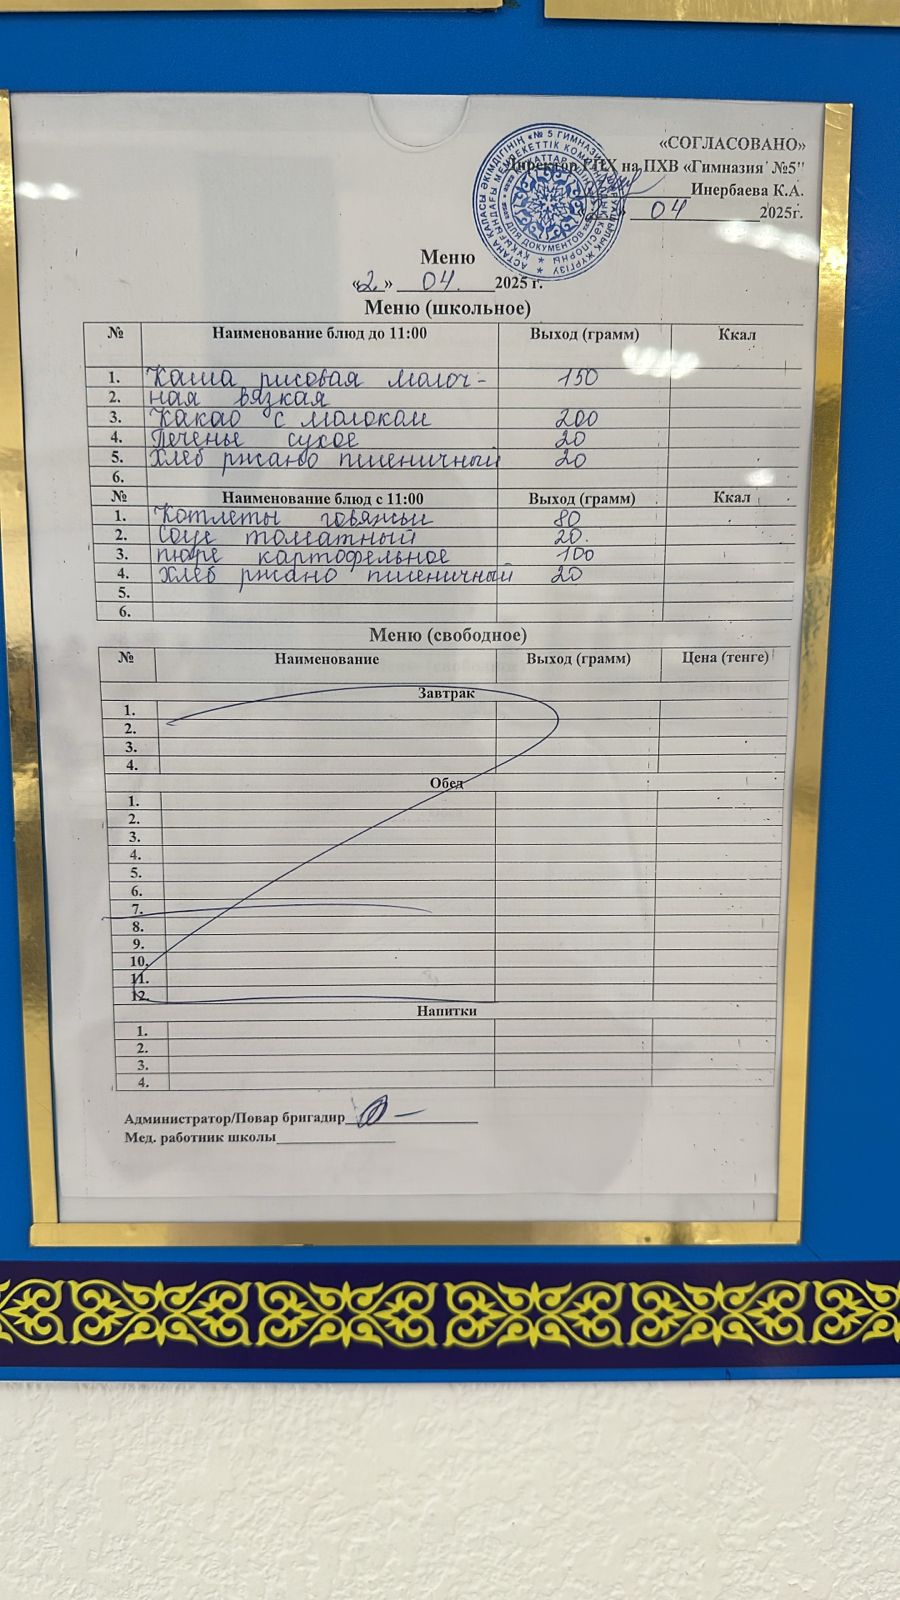 «СОГЛАСОВАНО»
Директор ГПХ на ПХВ «Гимназия №5"
Инербаева К.А.
04 2025г.
АСТАНА ҚАЛАСЫ ӘКІМДІГІНІҢ «№ 5 ГИМНАЗИЯ
ДЛЯ ДОКУМЕНТОВ
Меню
«2» 04. 2025 г.
Меню (школьное)
№ Наименование блюд до 11:00 Выход (грамм) Ккал
1. Каша рисовая молоч- 150
2. ная вязкая
3. Какао с молоком 200
4. Печенье сухое 20
5. Хлеб ржано пшеничный 20
6.
№ Наименование блюд с 11:00 Выход (грамм) Ккал
1. Котлеты говяжьи 80
2. Соус томатный 20.
3. пюре картофельное 100
4. Хлеб ржано пшеничный 20
5.
6.
Меню (свободное)
№ Наименование Выход (грамм) Цена (тенге)
Завтрак
1.
2.
3.
4.
Обед
1.
2.
3.
4.
5.
6.
7.
8.
9.
10.
11.
12.
Напитки
1.
2.
3.
4.
Администратор/Повар бригадир
Мед. работник школы